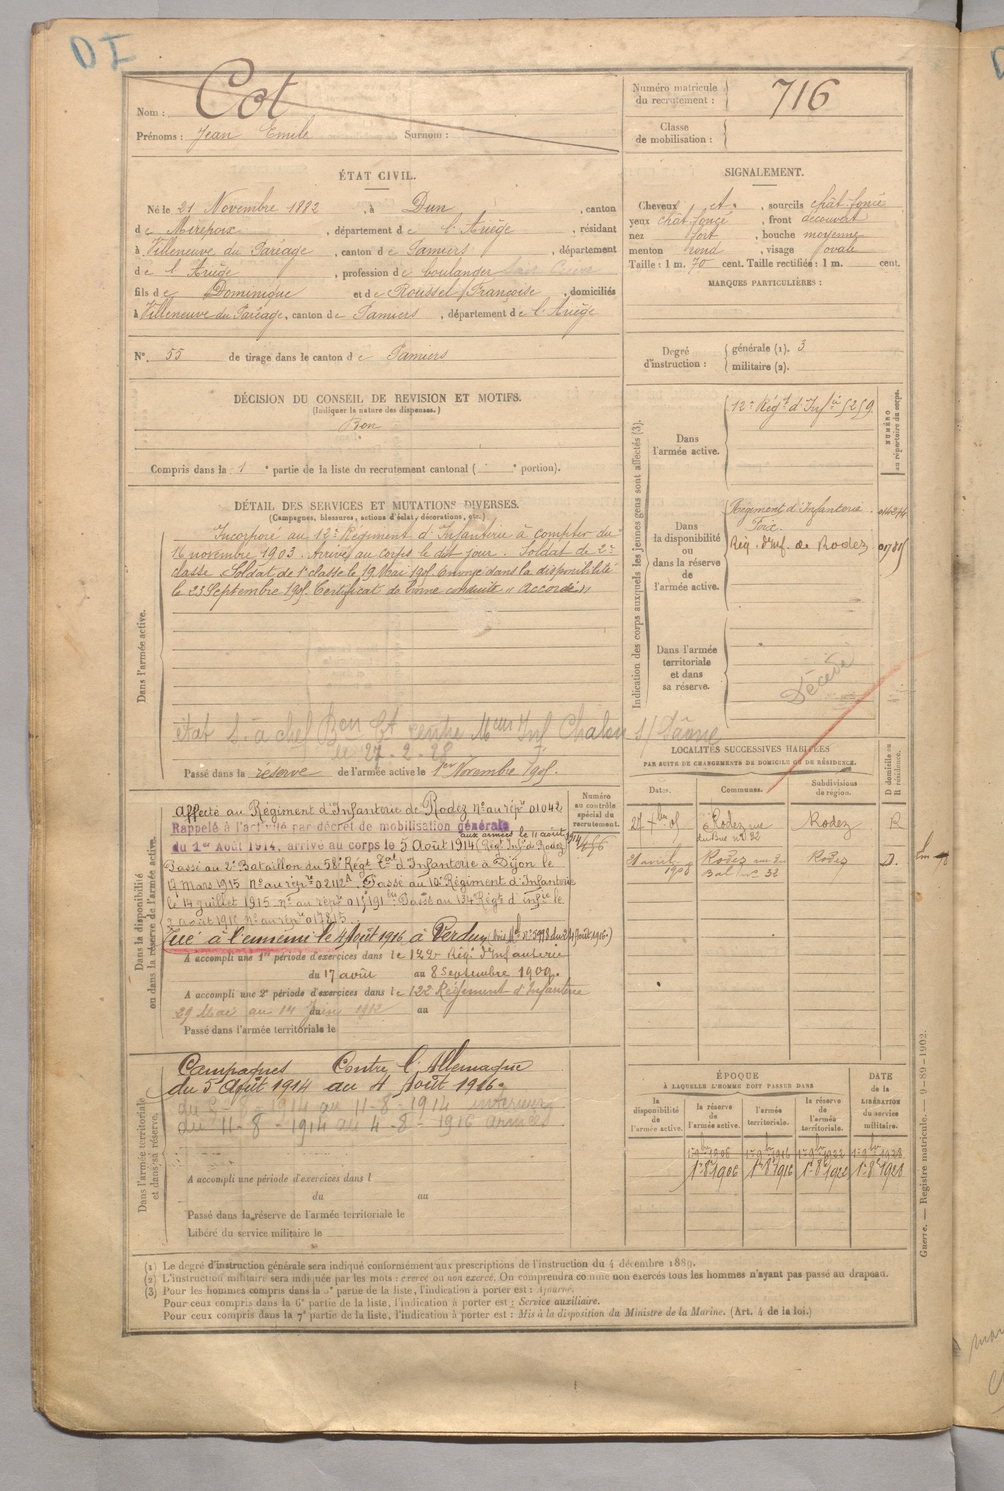 DI
Nom : Cot
Prénoms : Jean Emile Surnom :
Numéro matricule du recrutement : 716
Classe de mobilisation :
ÉTAT CIVIL.
Né le 21 Novembre 1882, à Dun, canton
de Mirepoix, département de l'Ariège, résidant
à Villeneuve du Paréage, canton de Pamiers, département
de l'Ariège, profession de boulanger
fils de Dominique et de Roussel Françoise, domiciliés
à Villeneuve du Paréage, canton de Pamiers, département de l'Ariège
N° 55 de tirage dans le canton de Pamiers
SIGNALEMENT.
Cheveux et, sourcils chât foncé
yeux chât foncé, front découvert
nez fort, bouche moyenne
menton rond, visage ovale
Taille : 1 m. 70 cent. Taille rectifiée : 1 m. cent.
MARQUES PARTICULIÈRES :
Degré d'instruction : générale (1). 3
militaire (2).
DÉCISION DU CONSEIL DE REVISION ET MOTIFS.
(Indiquer la nature des dispenses.)
Bon
Compris dans la 1e partie de la liste du recrutement cantonal ( e portion).
Indication des corps auxquels les jeunes gens sont affectés (3).
NUMÉRO au répertoire du corps.
Dans l'armée active.
12e Régt d'Infie 5259
Dans la disponibilité ou dans la réserve de l'armée active.
Régiment d'Infanterie
Foix
Rég. d'Inf. de Rodez
Dans l'armée territoriale et dans sa réserve.
Décédé
DÉTAIL DES SERVICES ET MUTATIONS DIVERSES.
(Campagnes, blessures, actions d'éclat, décorations, etc.)
Dans l'armée active.
Incorporé au 12e Régiment d'Infanterie à compter du
16 novembre 1903. Arrivé au corps le dit jour. Soldat de 2e
classe. Soldat de 1e classe le 19 Mai 1905. Envoyé dans la disponibilité
le 23 Septembre 1905. Certificat de bonne conduite "Accordé"
Etat S. à chef Bon Ct centre Meur Inf Chalon s/ Saône
le 27-2-28
Passé dans la réserve de l'armée active le 1er Novembre 1905.
Dans la disponibilité ou dans la réserve de l'armée active.
Numéro au contrôle spécial du recrutement.
Affecté au Régiment d'Infanterie de Rodez N° au répre 01042
Rappelé à l'activité par décret de mobilisation générale
du 1er Août 1914, arrivé au corps le 5 Août 1914 (Régt Inf. de Rodez)
aux armées le 11 août 1914
Passé au 2e Bataillon du 58e Régt Tal d'Infanterie à Dijon le
17 Mars 1915 n° au répre 02112d. Passé au 10e Régiment d'Infanterie
le 14 juillet 1915 n° au répre
Tué à l'ennemi le 4 Août 1916 à Verdun
A accompli une 1re période d'exercices dans le 122e Rég. d'Infanterie
du 17 août au 8 Septembre 1909.
A accompli une 2e période d'exercices dans le 122 Régiment d'Infanterie
29 Mai au 14 Juin 1912 du au
Passé dans l'armée territoriale le
LOCALITÉS SUCCESSIVES HABITÉES
PAR SUITE DE CHANGEMENTS DE DOMICILE OU DE RÉSIDENCE.
Dates. Communes. Subdivisions de région. D domicile ou R résidence.
Rodez Rodez R
21 avril 1908 Rodez Rodez D.
Dans l'armée territoriale et dans sa réserve.
Campagnes Contre l'Allemagne
du 5 Août 1914 au 4 Août 1916.
du 2-8-1914 au 11-8-1914 intérieur
du 11-8-1914 au 4-8-1916 armées
A accompli une période d'exercices dans l
du au
Passé dans la réserve de l'armée territoriale le
Libéré du service militaire le
ÉPOQUE
À LAQUELLE L'HOMME DOIT PASSER DANS
DATE de la LIBÉRATION du service militaire.
la disponibilité de l'armée active. la réserve de l'armée active. l'armée territoriale. la réserve de l'armée territoriale.
1er 8bre 1906 1er 8bre 1916
(1) Le degré d'instruction générale sera indiqué conformément aux prescriptions de l'instruction du 4 décembre 1889.
(2) L'instruction militaire sera indiquée par les mots : exercé ou non exercé. On comprendra comme non exercés tous les hommes n'ayant pas passé au drapeau.
(3) Pour les hommes compris dans la 5e partie de la liste, l'indication à porter est : Ajourné.
Pour ceux compris dans la 6e partie de la liste, l'indication à porter est : Service auxiliaire.
Pour ceux compris dans la 7e partie de la liste, l'indication à porter est : Mis à la disposition du Ministre de la Marine. (Art. 4 de la loi.)
Guerre. — Registre matricule. — 9-89-1902.